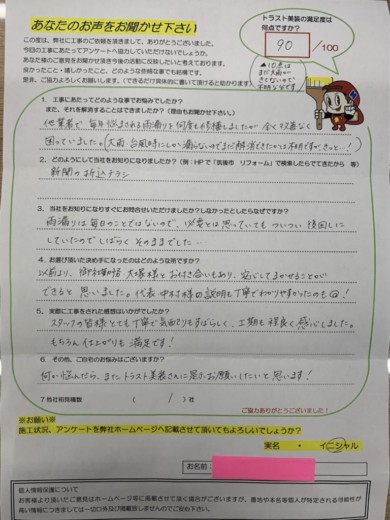 あなたのお声をお聞かせ下さい
トラスト美装の満足度は
何点ですか?
90 /100
この度は、弊社に工事のご依頼を頂きまして、ありがとうございました。
今回の工事にあたってアンケートへ協力していただけないでしょうか。
あなた様のご意見をお聞かせ頂き今後の活動に反映したいと考えております。
良かったこと・嬉しかったこと、どのような些細な事でも結構です。
是非、ご協力よろしくお願いします。(できるだけ具体的に書いて頂けると助かります)
▲10点は
まだ大雨が
きてないので
不明な分です
1. 工事にあたってどのような事でお悩みでしたか?
また、それを解消することはできましたか?(理由もお聞かせ下さい。)
他業者で毎年悩まされる雨漏りを何度も修繕しましたが、全く改善なく
困っていました。(大雨・台風時にしか漏らないのでまだ解消できたかは不明ですが、きっと…!)
2. どのようにして当社をお知りになりましたか?(例:HPで「筑後市 リフォーム」で検索したらでてきたから 等)
新聞の折込チラシ
3. 当社をお知りになりすぐにお問合せいただけましたか?しなかったとしたらなぜですか?
雨漏りは毎日のことではないので、必要とは思っていてもついつい後回しに
していたのでしばらくそのままでした…
4. お選び頂いた決め手になったのはどのような所ですか?
以前より、御社の 大曲様とお付き合いもあり、安心してまかせることが
できると思いました。代表 中村様の説明も丁寧でわかりやすかったのも◎!
5. 実際に工事をされた感想はいかがでしたか?
スタッフの皆様とても丁寧で気配りもすばらしく、工期も程良く感じました。
もちろん仕上がりも満足です!
6. その他、ご自宅のお悩みはございますか?
何か悩んだら、またトラスト美装さんに是非お願いしたいと思います!
7 他社相見積数 ( 1 ) 社
ご協力ありがとうございました!
※お願い※
施工状況、アンケートを弊社ホームページへ記載させて頂いてもよろしいでしょうか?
実名 ・ イニシャル
お名前
個人情報保護について
お客様より頂いたご意見はホームページ等に掲載させて頂く場合がございますが、番地や本名等個人が特定される可能性が
高い情報につきましては一切口外及び掲載致しませんのでご安心下さい。